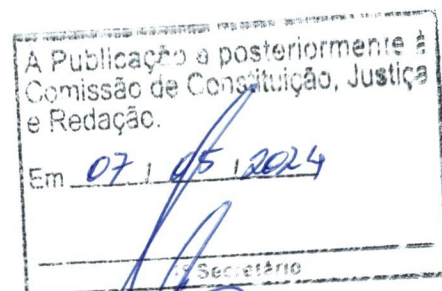 A Publicação e posteriormente à
Comissão de Constituição, Justiça
e Redação.
Em 07 / 05 / 2024
1º Secretário